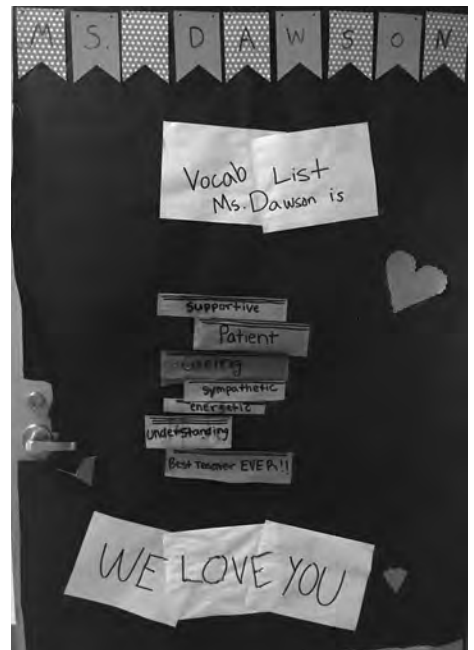 MS. DAWSON
Vocab List
Ms. Dawson is
supportive
Patient
sympathetic
energetic
understanding
Best Teacher EVER!!
WE LOVE YOU